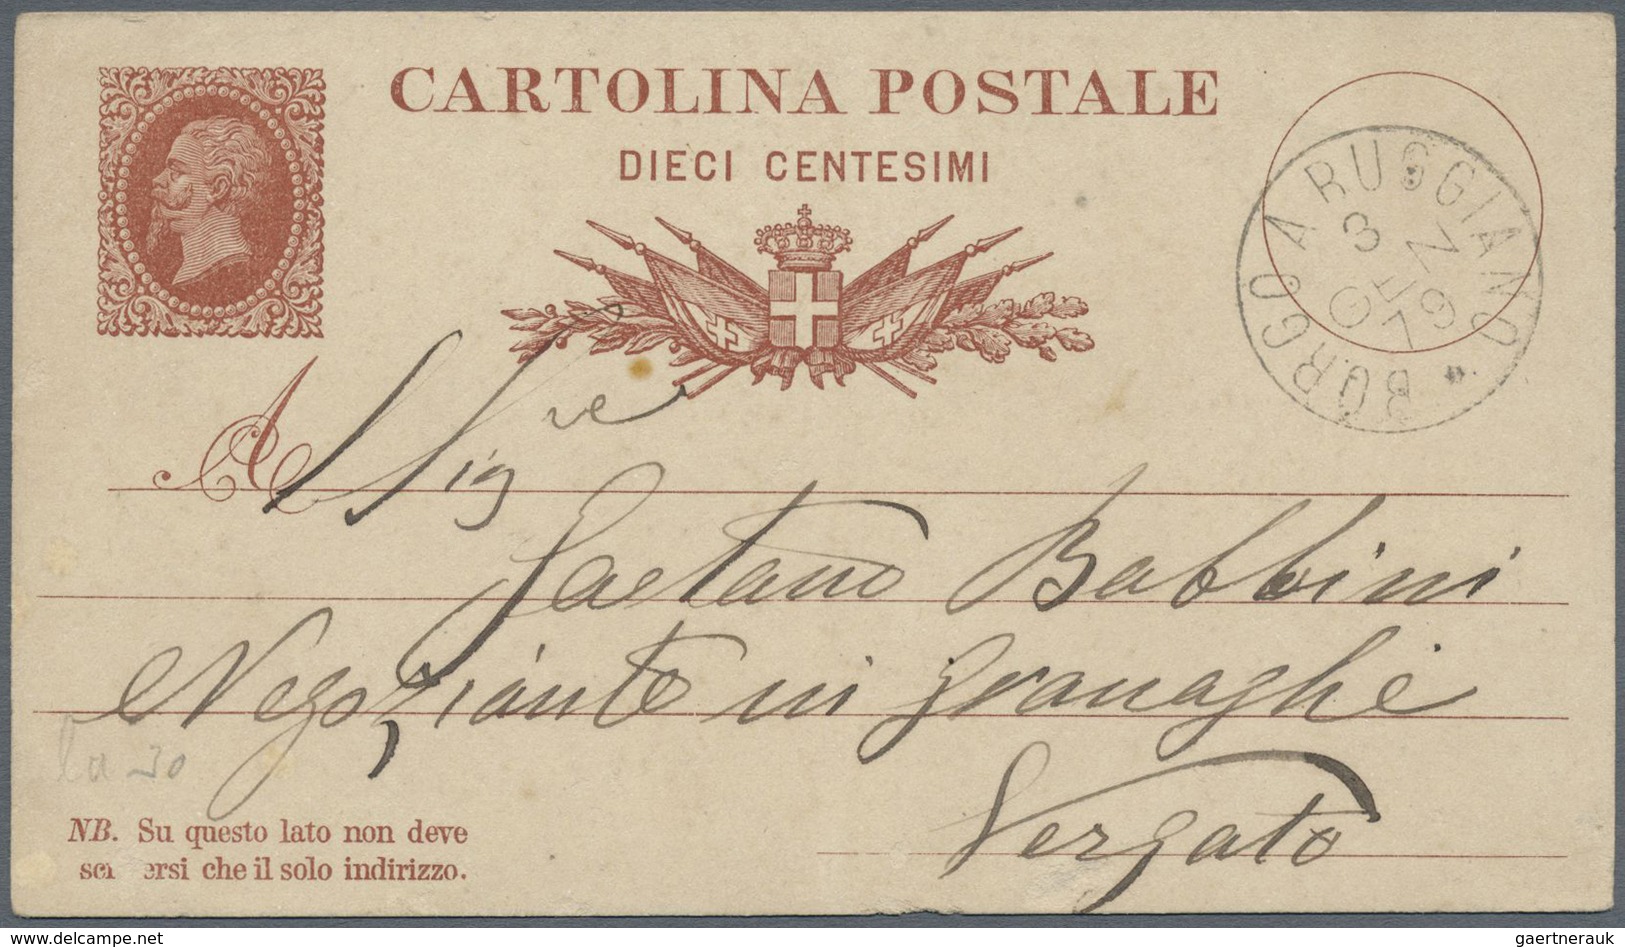 CARTOLINA POSTALE
DIECI CENTESIMI
BORGO A RUGGIANO
3
GEN
79
Al Sig re
Gaetano Babbini
Negoziante in granaghe
Vergato
30
NB. Su questo lato non deve
ersi che il solo indirizzo.
delcampe.net
gaertnerauk